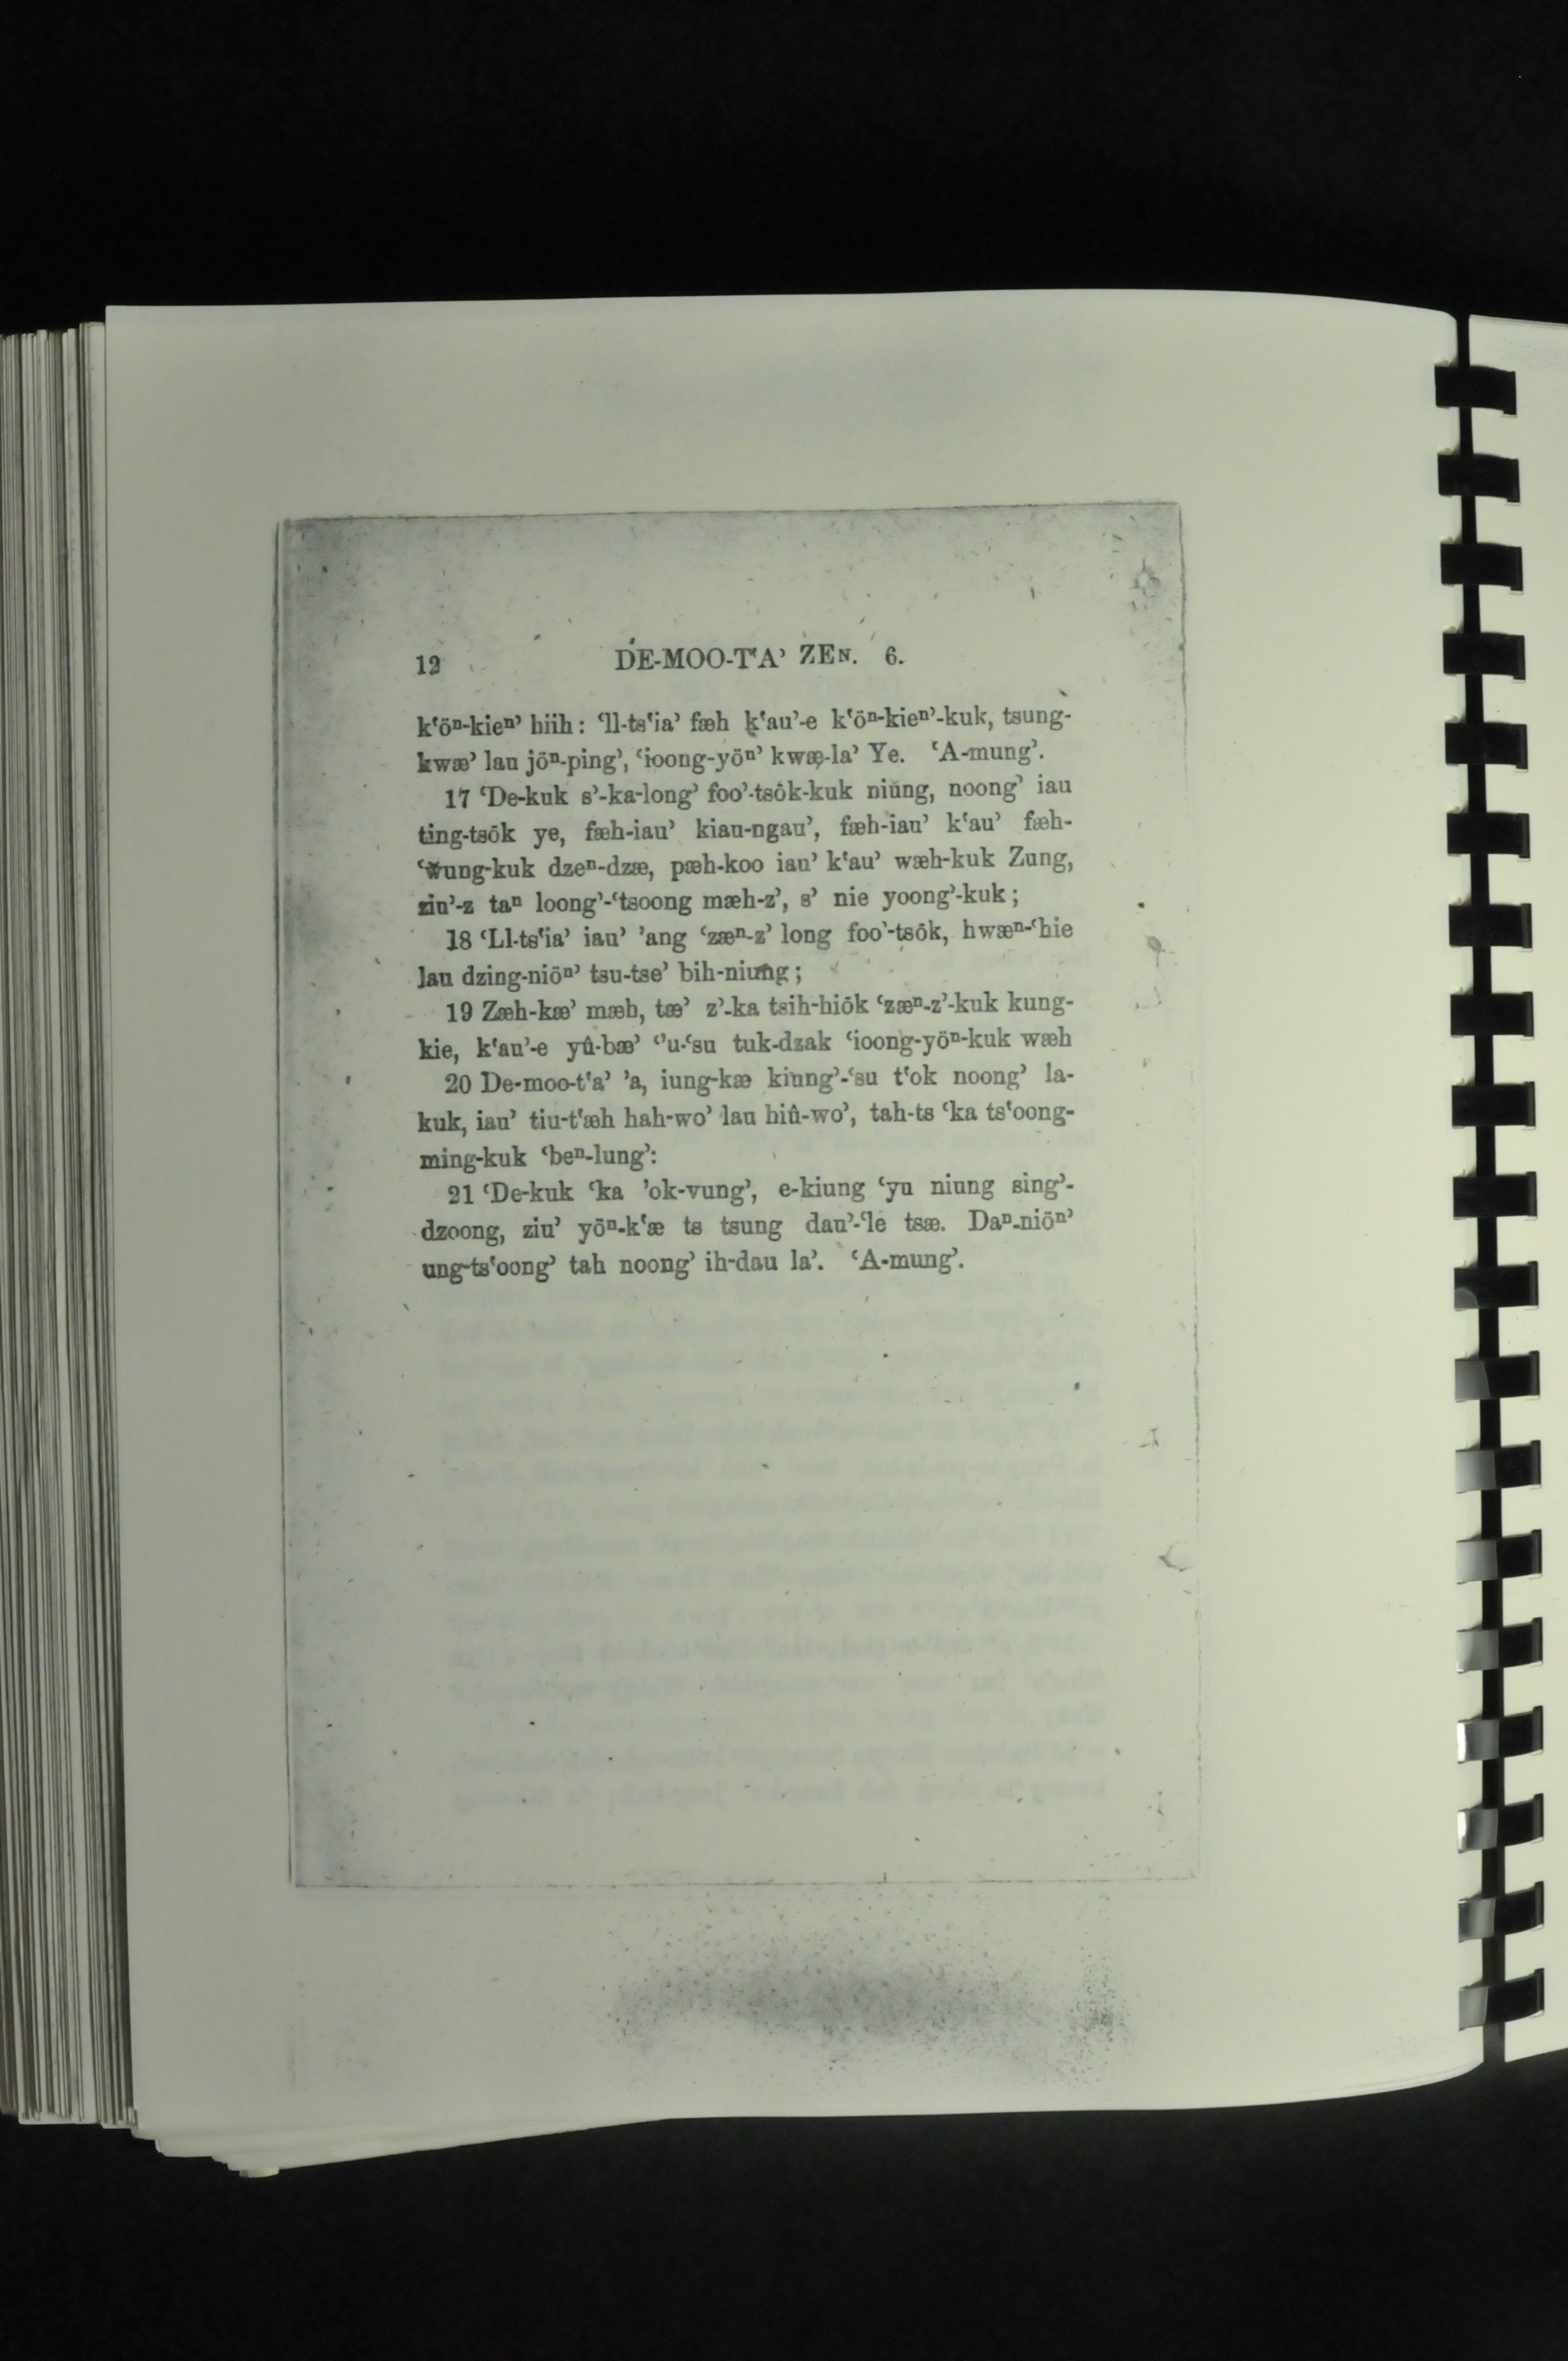 12 DE-MOO-T‘A’ ZEN. 6.
k‘öⁿ-kieⁿ’ hiih: ‘ll-ts‘ia’ fæh k‘au’-e k‘öⁿ-kieⁿ’-kuk, tsung-
kwæ’ lau jöⁿ-ping’, ‘ioong-yöⁿ’ kwæ-la’ Ye. ‘A-mung’.
17 ‘De-kuk s’-ka-long’ foo’-tsók-kuk niüng, noong’ iau
ting-tsök ye, fæh-iau’ kiau-ngau’, fæh-iau’ k‘au’ fæh-
‘wung-kuk dzeⁿ-dzæ, pæh-koo iau’ k‘au’ wæh-kuk Zung,
ziu’-z taⁿ loong’-‘tsoong mæh-z’, s’ nie yoong’-kuk;
18 ‘Ll-ts‘ia’ iau’ ’ang ‘zæⁿ-z’ long foo’-tsök, hwæⁿ-‘hie
lau dzing-niöⁿ’ tsu-tse’ bih-niung;
19 Zæh-kæ’ mæh, tæ’ z’-ka tsih-hiök ‘zæⁿ-z’-kuk kung-
kie, k‘au’-e yû-bæ’ ‘’u-‘su tuk-dzak ‘ioong-yöⁿ-kuk wæh
20 De-moo-t‘a’ ’a, iung-kæ kiung’-‘su t‘ok noong’ la-
kuk, iau’ tiu-t‘æh hah-wo’ lau hiû-wo’, tah-ts ‘ka ts‘oong-
ming-kuk ‘beⁿ-lung’:
21 ‘De-kuk ‘ka ’ok-vung’, e-kiung ‘yu niung sing’-
dzoong, ziu’ yöⁿ-k‘æ ts tsung dau’-‘le tsæ. Daⁿ-niöⁿ’
ung-ts‘oong’ tah noong’ ih-dau la’. ‘A-mung’.